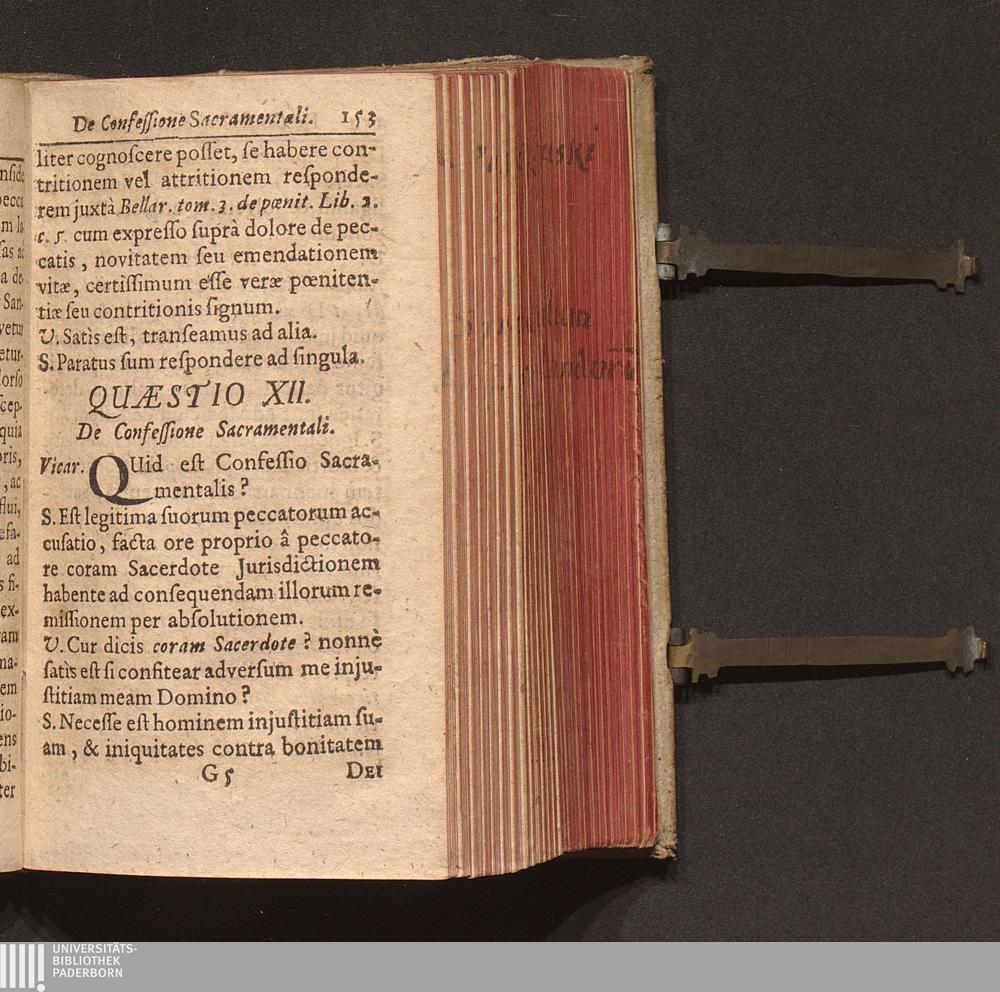 De Confeſſione Sacramentali. 153
liter cognoſcere poſſet, ſe habere con-
tritionem vel attritionem reſponde-
rem juxtà Bellar. tom. 3. de pœnit. Lib. 2.
c. 5. cum expreſſo ſuprà dolore de pec-
catis, novitatem ſeu emendationem
vitæ, certiſſimum eſſe veræ pœniten-
tiæ ſeu contritionis ſignum.
V. Satìs eſt, tranſeamus ad alia.
S. Paratus ſum reſpondere ad ſingula.
QUÆSTIO XII.
De Confeſſione Sacramentali.
Vicar. QUid eſt Confeſſio Sacra-
mentalis?
S. Eſt legitima ſuorum peccatorum ac-
cuſatio, facta ore proprio â peccato-
re coram Sacerdote Jurisdictionem
habente ad conſequendam illorum re-
miſſionem per abſolutionem.
V. Cur dicis coram Sacerdote? nonnè
ſatìs eſt ſi confitear adverſum me inju-
ſtitiam meam Domino?
S. Neceſſe eſt hominem injuſtitiam ſu-
am, & iniquitates contra bonitatem
G5 DEI
UNIVERSITÄTS-
BIBLIOTHEK
PADERBORN